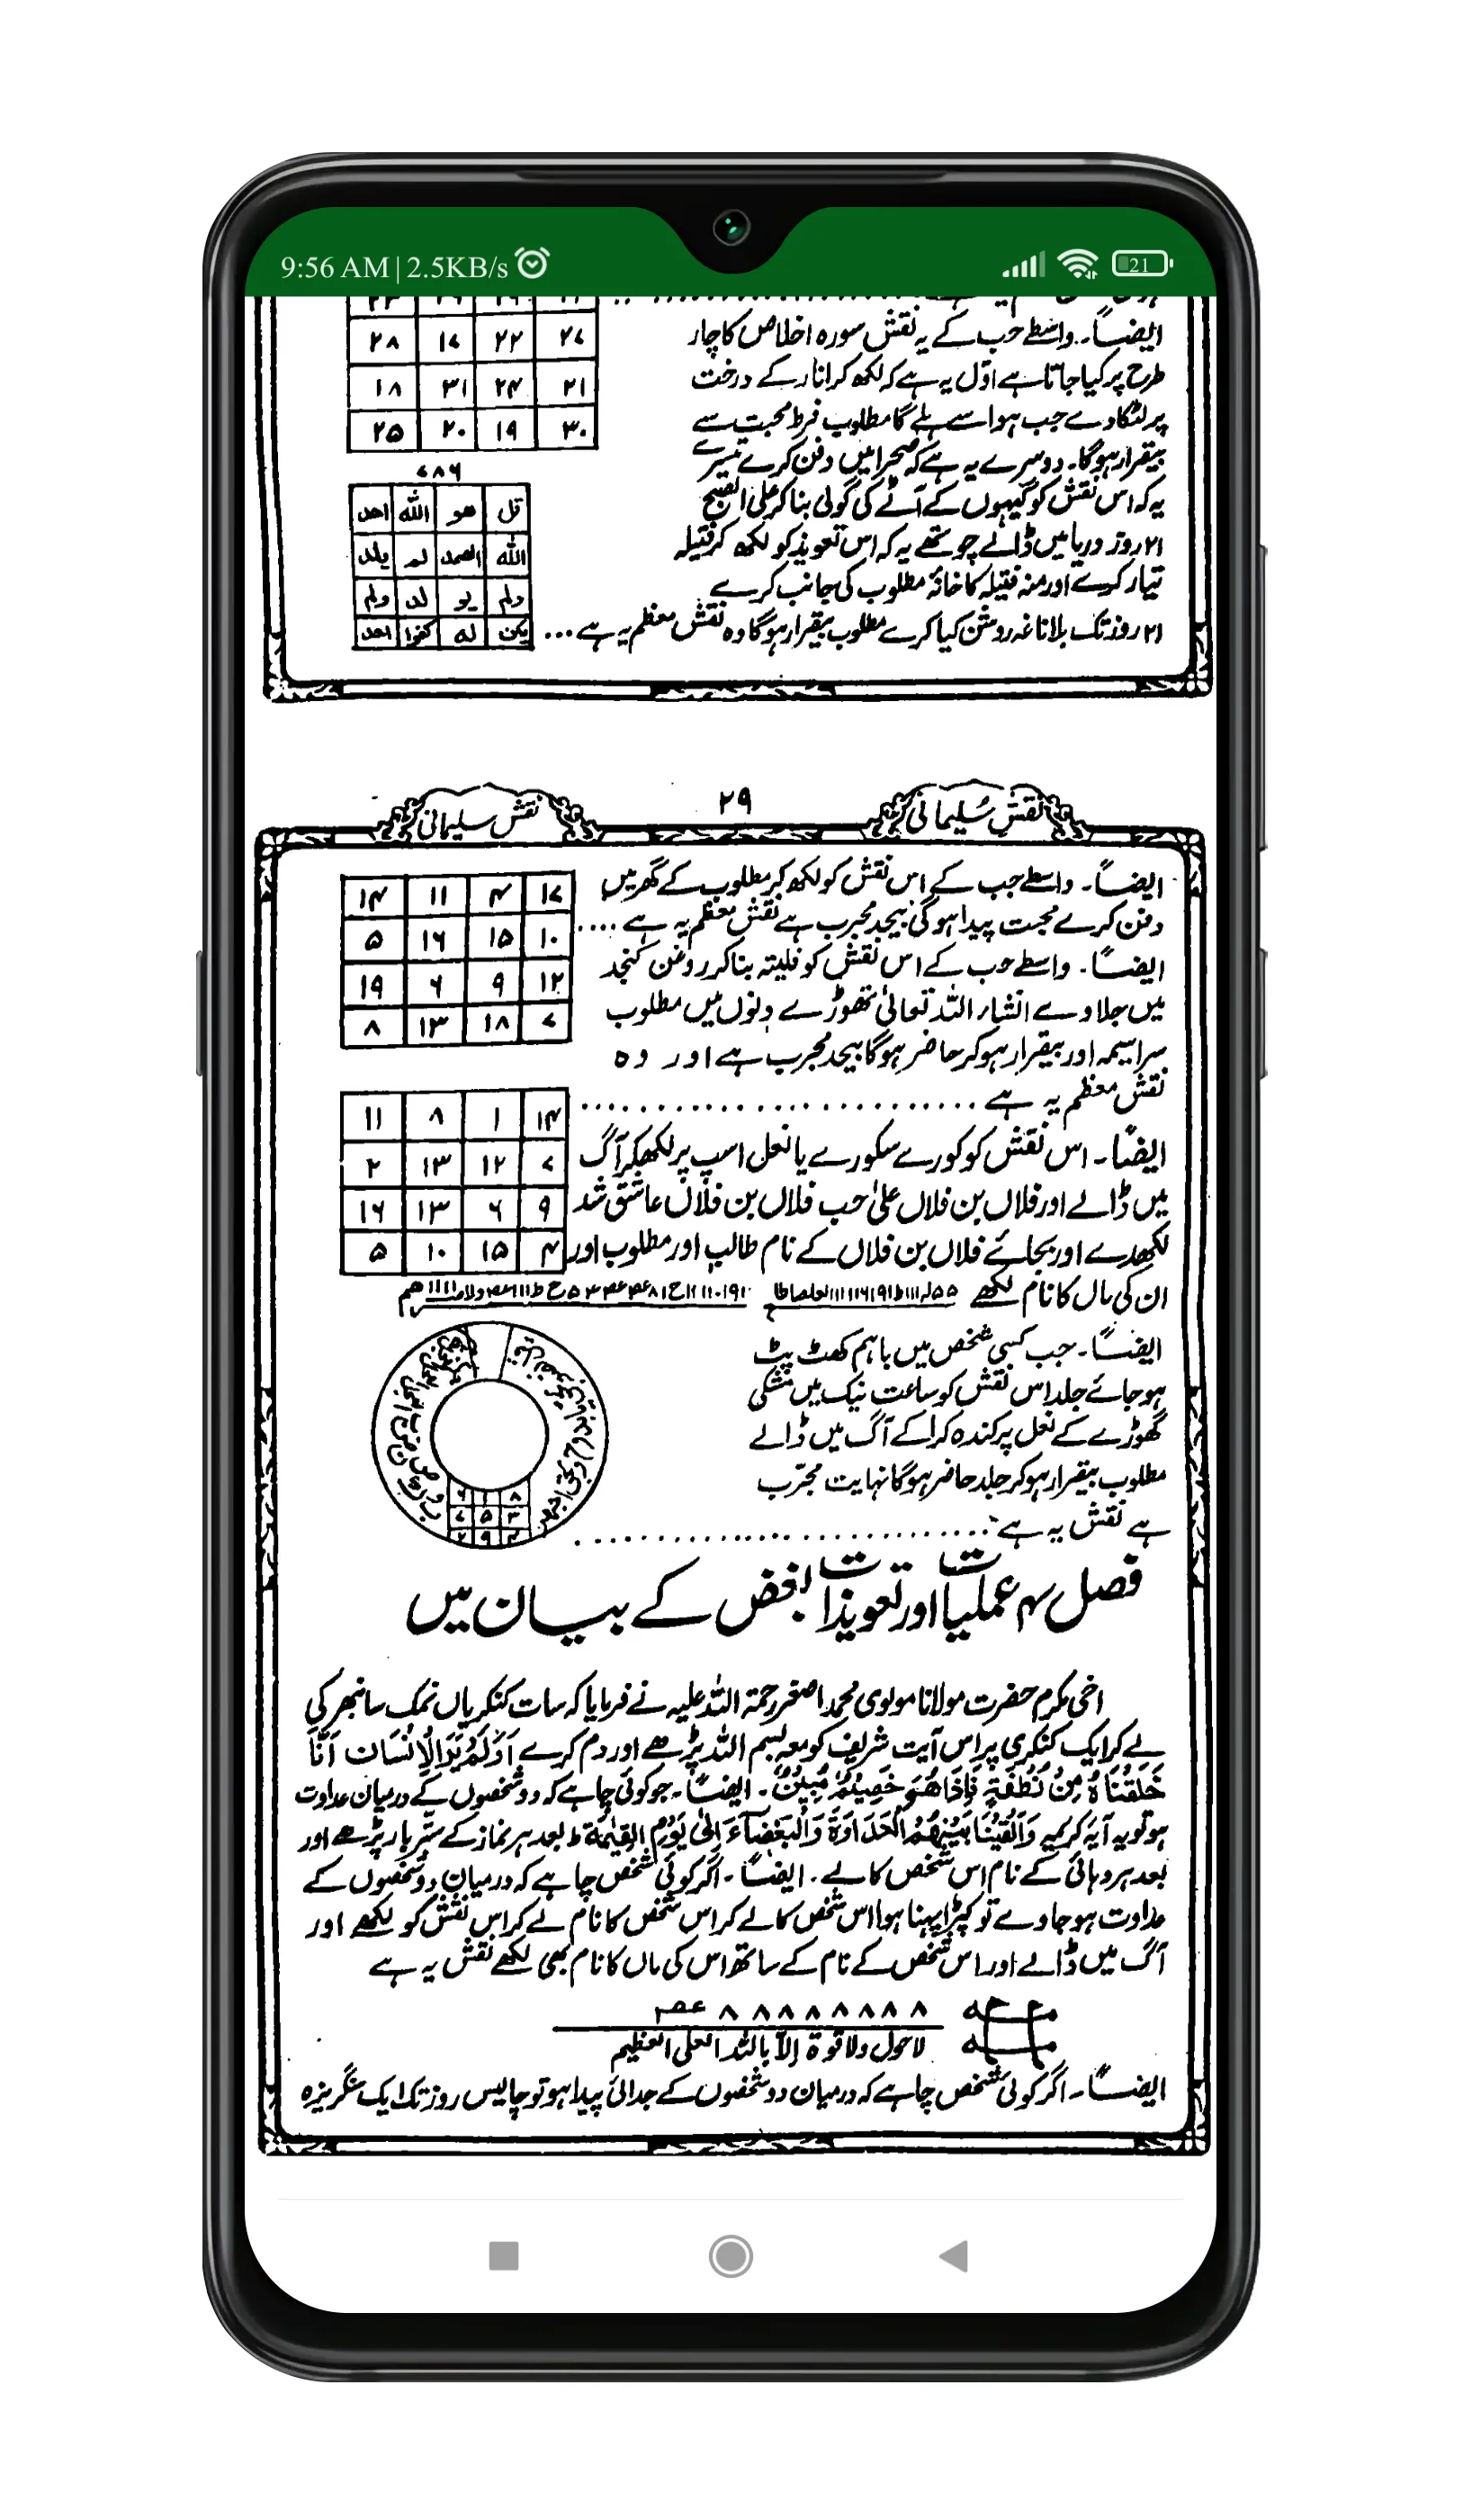 9:56 AM | 2.5KB/s
21
ایضاً۔ واسطے حب کے یہ نقش سورہ اخلاص کا چار
۲۸ ۱۷ ۲۲ ۲۷
طرح پر کیا جاتا ہے اوّل یہ ہے کہ لکھ کر انار کے درخت
۱۸ ۳۱ ۲۴ ۲۱
پر لٹکا دے جب ہوا سے ہلے گا مطلوب فرط محبت سے
۲۵ ۲۰ ۱۹ ۳۰
بیقرار ہوگا۔ دوسرے یہ ہے کہ صحرا میں دفن کرے تیسرے
۷۸۶
یہ کہ اس نقش کو گیہوں کے آٹے کی گولی بنا کر علی الصبح
قل هو الله احد
۲۱ روز دریا میں ڈالے چوتھے یہ کہ اس تعویذ کو لکھ کر فتیلہ
الله الصمد لم یلد
تیار کرے اور منہ فتیلہ کا خانۂ مطلوب کی جانب کرے
ولم یو لد ولم
۲۱ روز تک بلاناغہ روشن کیا کرے مطلوب بیقرار ہوگا وہ نقش معظم یہ ہے ...
یکن له کفوا احد
نقش سُلیمانی
۲۹
نقش سلیمانی
ایضاً۔ واسطے حب کے اس نقش کو لکھ کر مطلوب کے گھر میں
۱۴ ۱۱ ۴ ۱۷
دفن کرے محبت پیدا ہوگی بیحد مجرب ہے نقش معظم یہ ہے ....
۵ ۱۶ ۱۵ ۱۰
ایضاً۔ واسطے حب کے اس نقش کو فلیتہ بنا کر روغن کنجد
۱۹ ۶ ۹ ۱۲
میں جلاوے انشاء اللہ تعالیٰ تھوڑے دنوں میں مطلوب
۸ ۱۳ ۱۸ ۷
سراسیمہ اور بیقرار ہو کر حاضر ہوگا بیحد مجرب ہے اور وہ
نقش معظم یہ ہے
۱۱ ۸ ۱ ۱۴
ایضاً۔ اس نقش کو کورے سکورے یا نعل اسپ پر لکھکر آگ
۲ ۱۳ ۱۲ ۷
میں ڈالے اور فلاں بن فلاں علیٰ حب فلاں بن فلاں عاشق شد
۱۶ ۱۳ ۶ ۹
لکھدے اور بجائے فلاں بن فلاں کے نام طالب اور مطلوب اور
۵ ۱۰ ۱۵ ۴
ان کی ماں کا نام لکھے
ایضاً۔ جب کسی شخص میں باہم کھٹ پٹ
ہو جائے جلد اس نقش کو ساعت نیک میں مشکی
گھوڑے کے نعل پر کندہ کرا کے آگ میں ڈالے
مطلوب بیقرار ہو کر جلد حاضر ہوگا نہایت مجرّب
ہے نقش یہ ہے
۶ ۱ ۸
۷ ۵ ۳
۲ ۹ ۴
فصل ۴ عملیات اور تعویذات بغض کے بیان میں
اخی مکرم حضرت مولانا مولوی محمد اصغر رحمۃ اللہ علیہ نے فرمایا کہ سات کنکریاں نمک سانبھر کی
لے کر ایک کنکری پر اس آیت شریف کو معہ بسم اللہ پڑھے اور دم کرے اَوَلَمْ یَرَ الْاِنْسَان اَنَّا
خَلَقْنَاهُ مِنْ نُّطْفَةٍ فَاِذَا هُوَ خَصِیْمٌ مُّبِیْنٌ۔ ایضاً۔ جو کوئی چاہے کہ دو شخصوں کے درمیان عداوت
ہو تو یہ آیہ کریمہ وَاَلْقَیْنَا بَیْنَهُمُ الْعَدَاوَةَ وَالْبَغْضَآءَ اِلٰی یَوْمِ الْقِیٰمَة ط بعد ہر نماز کے ستّر بار پڑھے اور
بعد ہر دہائی کے نام اس شخص کا لے۔ ایضاً۔ اگر کوئی شخص چاہے کہ درمیان دو شخصوں کے
عداوت ہو جاوے تو کپڑا پہنا ہوا اس شخص کا لے کر اس شخص کا نام لے کر اس نقش کو لکھے اور
آگ میں ڈالے اور اس شخص کے نام کے ساتھ اس کی ماں کا نام بھی لکھے نقش یہ ہے
۸ ۸ ۸ ۸ ۸ ۸ ۸ ۸
لاحول ولا قوة الا باللہ العلی العظیم
ایضاً۔ اگر کوئی شخص چاہے کہ درمیان دو شخصوں کے جدائی پیدا ہو تو چالیس روز تک ایک سنگریزہ